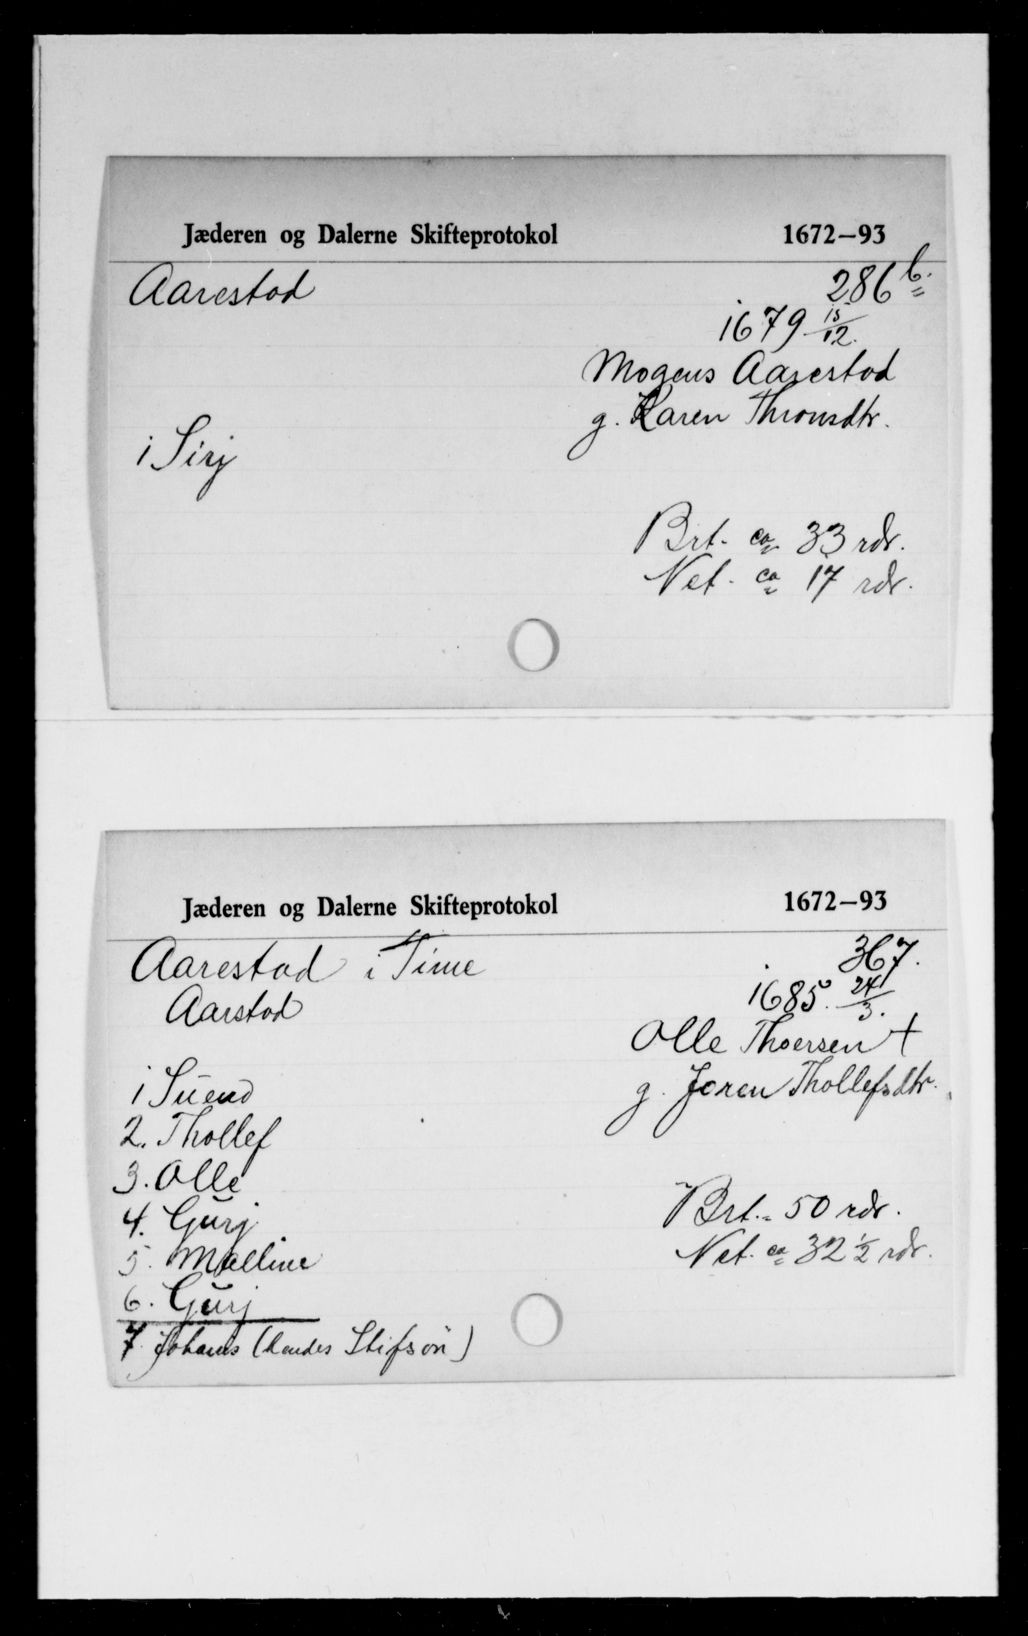 Jæderen og Dalerne Skifteprotokol 1672–93
Aarestad 286 b.
1679 15/12.
Mogens Aarestad
g. Karen Thronsdtr.
1 Sirj
Brt. ca 33 rdr.
Net. ca 17 rdr.
Jæderen og Dalerne Skifteprotokol 1672–93
Aarestad i Time 367.
Aarstad 1685. 24/3.
Olle Thoersen †
1 Suend g. Joren Thollefsdtr.
2. Thollef
3. Olle
4. Gurj Brt. = 50 rdr.
5. Malline Net. ca 32 1/2 rdr.
6. Gurj
7 Johans (hendes Stifsøn)